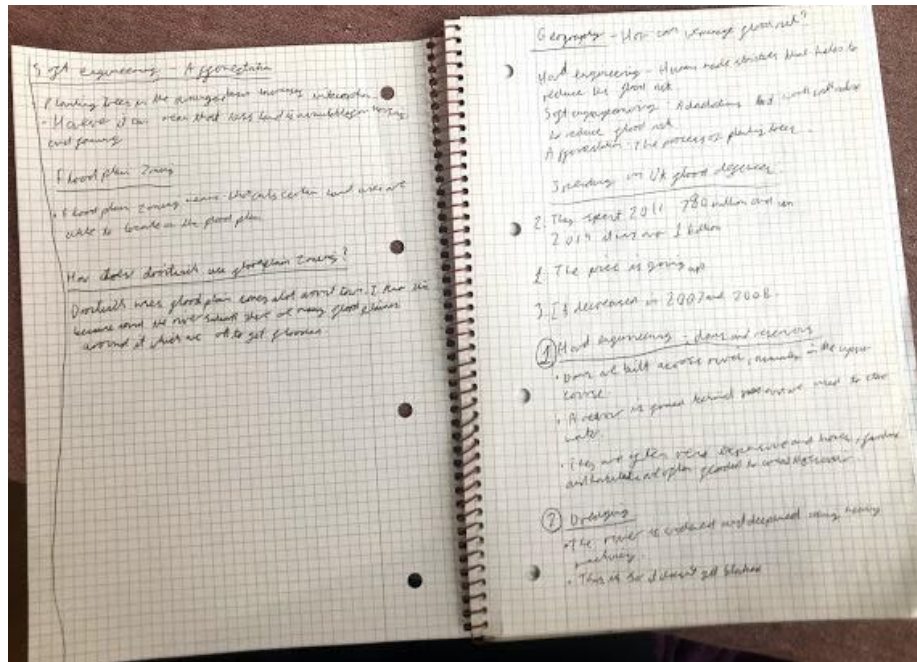 Soft engineering - Afforestation
Planting trees in the increases interception
- However it can mean that less land is available for
and farming
Flood plain Zoning
• Flood plain zoning means that only certain land uses are
able to locate on the flood plain
How does droitwich use floodplain zoning?
Droitwich uses flood plain zones alot around town. I this
because around the river there are many flood plains
around it which are ok to get flooded
Geography - How can we manage flood risk?
Hard engineering - Human made structures that helps to
reduce the flood risk
Soft engineering: work with nature
to reduce flood risk
Afforestation - The process of planting trees
Spending on UK flood defences
2. They spent 2011 780 million and in
2014 it was over 1 billion
1. The price is going up
3. It decreased in 2007 and 2008.
① Hard engineering : dams and reservoirs
• Dams are built across river, in the upper
course.
• A is formed behind and are used to store
water.
• They are often very expensive and
and habitats are often flooded
② Dredging
• The river is widened and deepened using heavy
machinery.
• This is so it doesn't get blocked